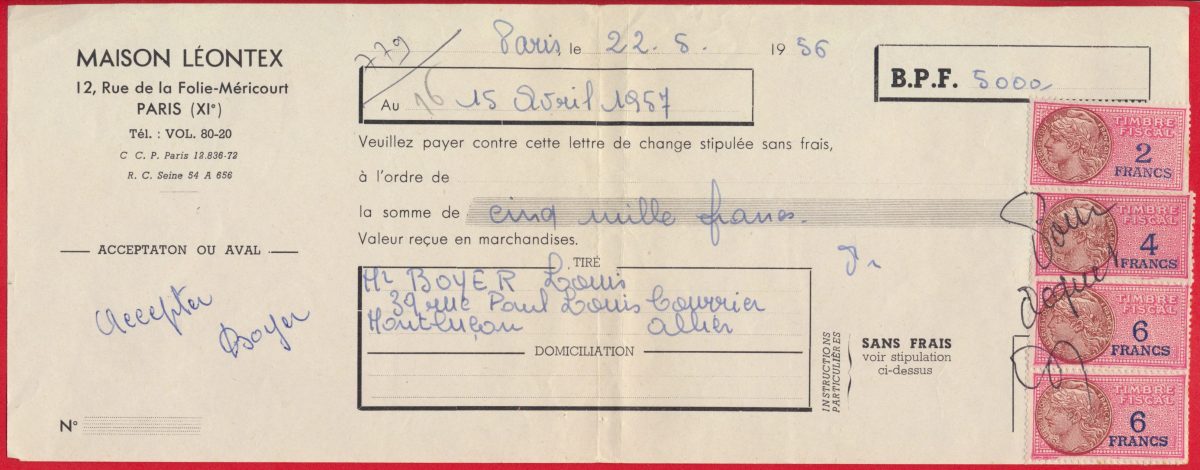 MAISON LÉONTEX
12, Rue de la Folie-Méricourt
PARIS (XI°)
Tél. : VOL. 80-20
C C. P. Paris 12.836-72
R. C. Seine 54 A 656
ACCEPTATON OU AVAL
Accepter
Boyer
N°
779
Paris, le 22. 5. 1956
B.P.F. 5000
Au 15 Avril 1957
Veuillez payer contre cette lettre de change stipulée sans frais,
à l'ordre de
la somme de cinq mille francs.
Valeur reçue en marchandises.
TIRÉ
Mr BOYER Louis
39 rue Paul Louis Courrier
Montluçon Allier
DOMICILIATION
INSTRUCTIONS
PARTICULIÈRES
SANS FRAIS
voir stipulation
ci-dessus
TIMBRE
FISCAL
2
FRANCS
TIMBRE
FISCAL
4
FRANCS
TIMBRE
FISCAL
6
FRANCS
TIMBRE
FISCAL
6
FRANCS
Pour
acquit